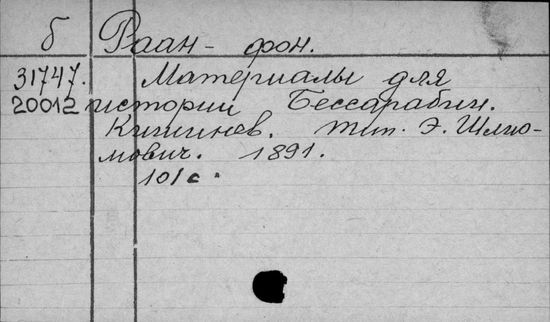 б Раан- фон.
31747. Материалы для
20012 истории Бессарабии.
Кишинев. тип. Э. Шлио-
мович. 1891.
101 с.